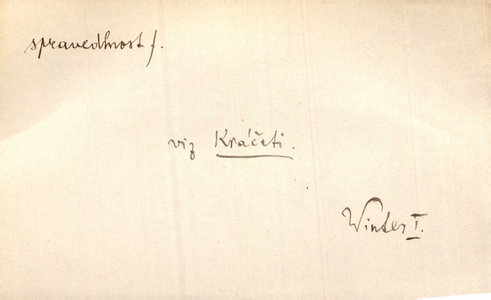 spravedlnost f.
viz Kráčeti.
Winter I.